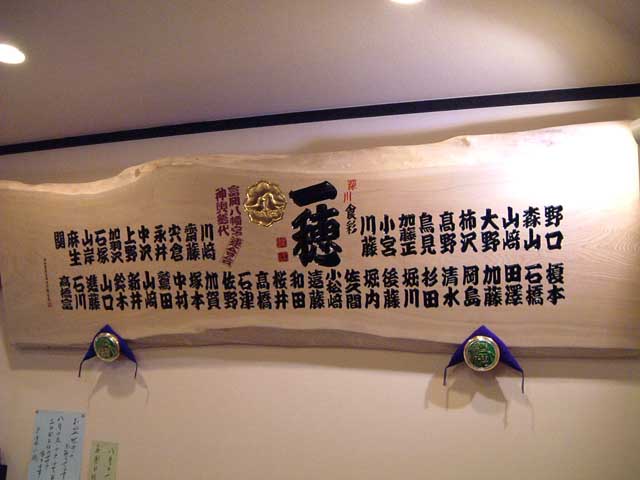 野口
森山
山﨑
大野
柿沢
高野
鳥見
加藤正
小宮
川藤
深川
食彩
一穂
富岡八幡宮
神輿総代
川﨑
齋藤
宍倉
永井
中沢
上野
加羽沢
石塚
山岸
麻生
関
榎本
石橋
田澤
加藤
岡島
清水
杉田
堀川
後藤
堀内
佐久間
小松﨑
遠藤
和田
桜井
高橋
石津
佐野
加賀
塚本
中村
鷲田
山﨑
新井
鈴木
山口
進藤
石川